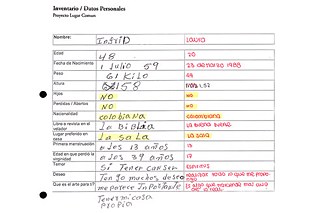 Inventario / Datos Personales
Proyecto Lugar Común
Nombre: IngriD Laura
Edad 48 20
Fecha de Nacimiento 1 Julio 59 23 de marzo 1988
Peso 61 Kilo 49
Altura 158 1,52
Hijos NO NO
Perdidas / Abortos NO NO
Nacionalidad colombiana colombiana
Libro o revista en el velador La BiBLia
Lugar preferido en casa La SaLa La sala
Primera menstruación a los 13 años 13
Edad en que perdió la virginidad a los 39 años 17
Temor Si Tener cancer
Deseo Tengo muchos deseo
Que es el arte para ti? me parece InPortante
Tener mi casa
PRoPia